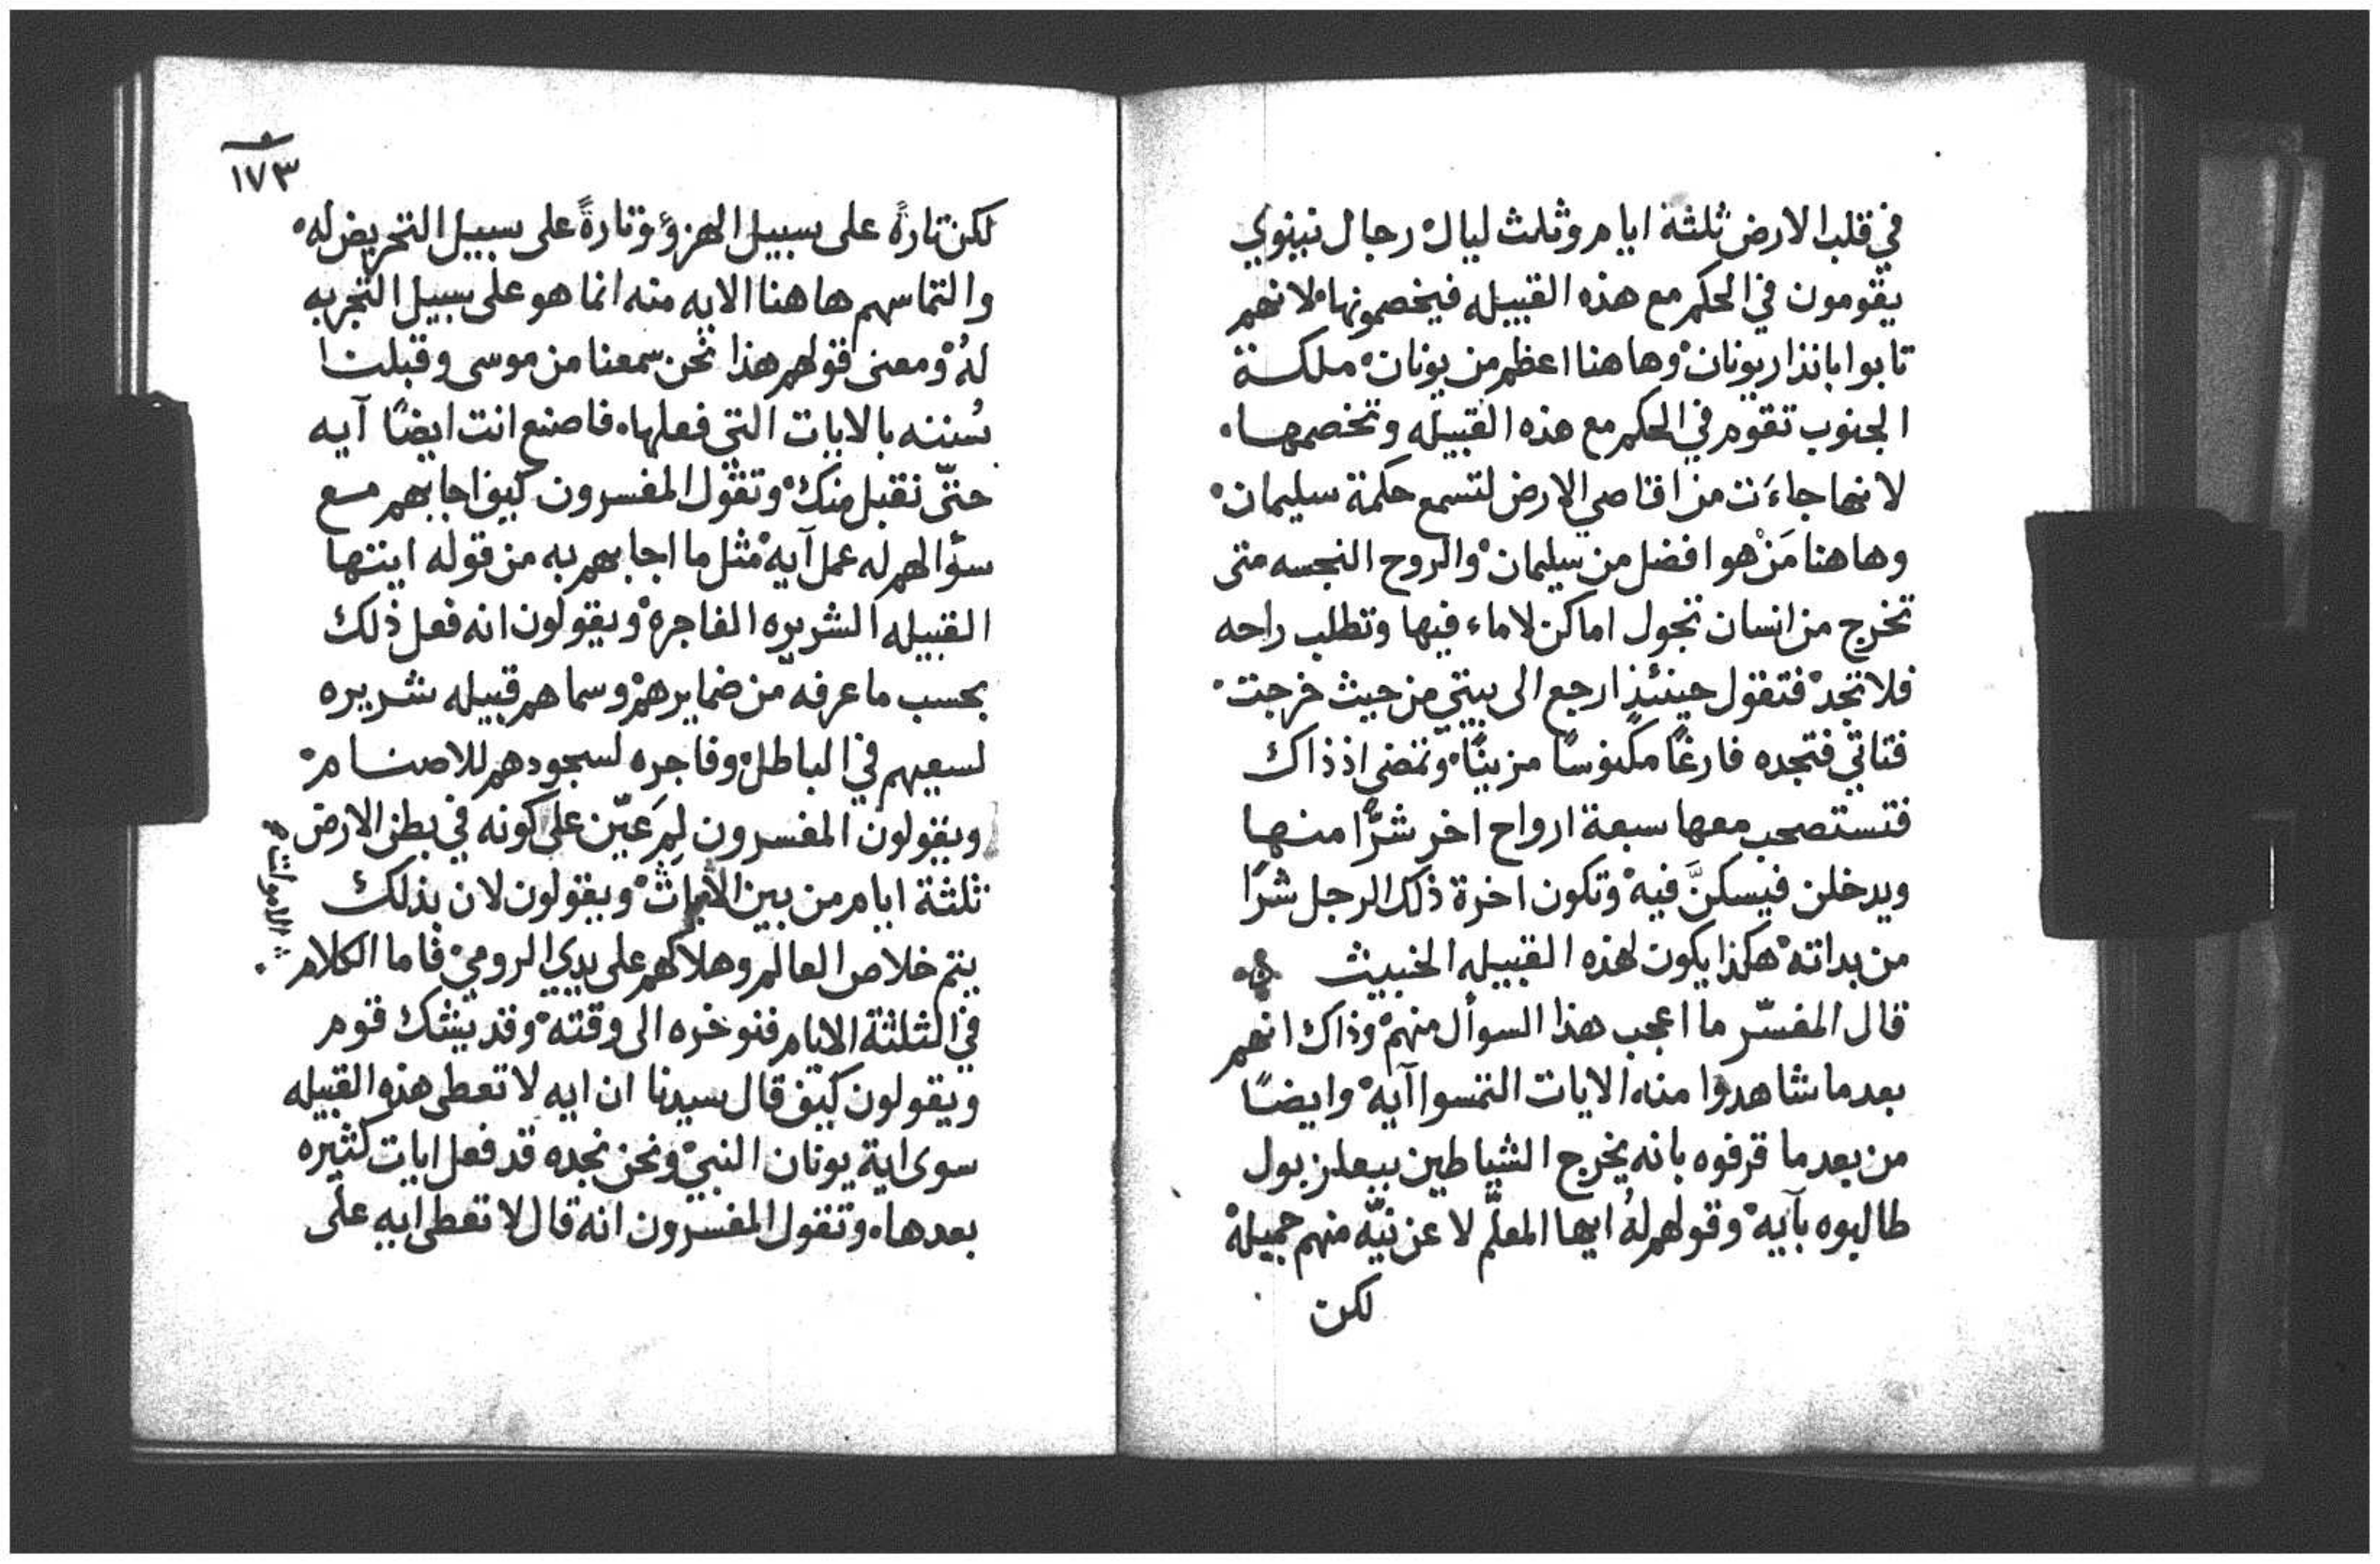 في قلب الارض ثلثة ايام وثلث ليال۟ رجال نينوي
يقومون في الحكم مع هذه القبيله فيخصمونها۟ لانهم
تابوا بانذار يونان۟ وهاهنا اعظم من يونان۟ ملكة
الجنوب تقوم في الحكم مع هذه القبيله وتخصمها۰
لانها جاءَت من اقاصي الارض لتسمع حكمة سليمان۟
وهاهنا مَنْ هو افضل من سليمان۟ والروح النجسه متى
تخرج من انسان تجول اماكن لا ماء فيها وتطلب راحه
فلا تجد۟ فتقول حينئذٍ ارجع الى بيتي من حيث خرجت۟
فتاتي فتجده فارغًا مكنوسًا مزينًا۟ وتمضى اذ ذاك
فتستصحب معها سبعة ارواح اخر شرًّا منها
ويدخلن فيسكنَّ فيه۟ وتكون اخرة ذلك الرجل شرًا
من بداته۟ هكذا يكون لهذه القبيله الخبيث
قال المفسّر ما اعجب هذا السوأل منهم۟ وذاك انهم
بعد ما شاهدوا منه الايات التمسوا آيه۟ وايضًا
من بعد ما قرفوه بانه يخرج الشياطين ببعلزبول
طالبوه بآيه۟ وقولهم لهُ ايها المعلّم لا عن نيّه منهم جميلة
لكن
١٧٣
لكن تارةً على سبيل الهزؤ۟ وتارةً على سبيل التحريض له۟
والتماسهم هاهنا الايه منه انما هو على سبيل التجربه
لهُ۟ ومعنى قولهم هذا نحن سمعنا من موسى وقبلنا
سُننه بالايات التي فعلها۰ فاصنع انت ايضًا آيه
حتّى نقبل منك۟ وتقول المفسرون كيف اجابهم مع
سؤالهم له عمل آيه۟ مثل ما اجابهم به من قوله ايتها
القبيله الشريره الفاجرة۟ ويقولون انه فعل ذلك
بحسب ما عرفه من ضمايرهم۟ وسماهم قبيله شريره
لسعيهم في الباطل۟ وفاجره لسجودهم للاصنام۟
ويقولون المفسرون لِمَ عيّن على كونه في بطن الارض
ثلثة ايام من بين الايات۟ ويقولون لان بذلك
يتم خلاص العالم وهلاكهم على يدي الرومي۟ فاما الكلام
في الثلثة الايام فنوخره الى وقته۟ وقد يشك قوم
ويقولون كيف قال سيدنا ان ايه لا تعطى هذه القبيله
سوى اية يونان النبي۟ ونحن نجده قد فعل ايات كثيره
بعدها۰ وتقول المفسرون انه قال لا تعطى ايه على